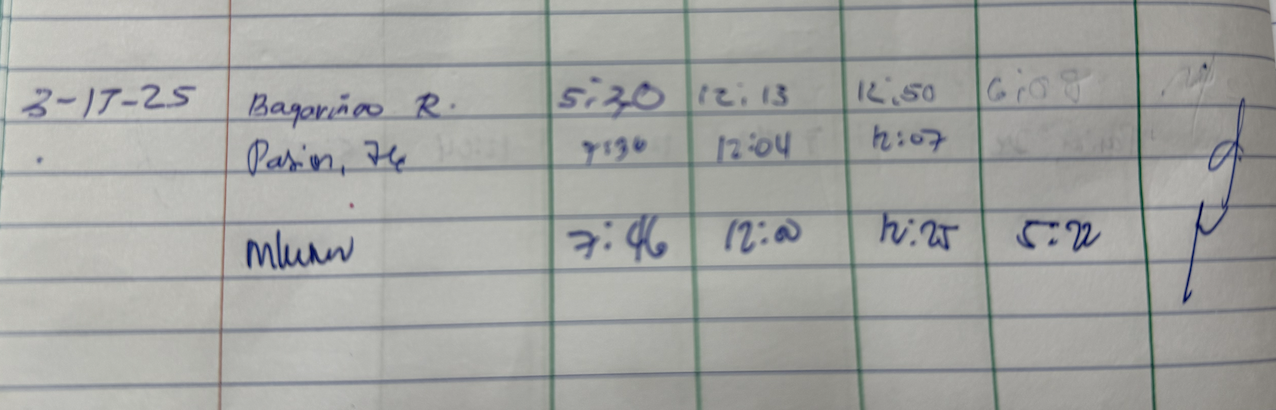 3-17-25 Bagariñao R. 5:30 12:13 12:50 6:08
Pasion, 7:30 12:04 12:07
7:46 12:00 12:25 5:22